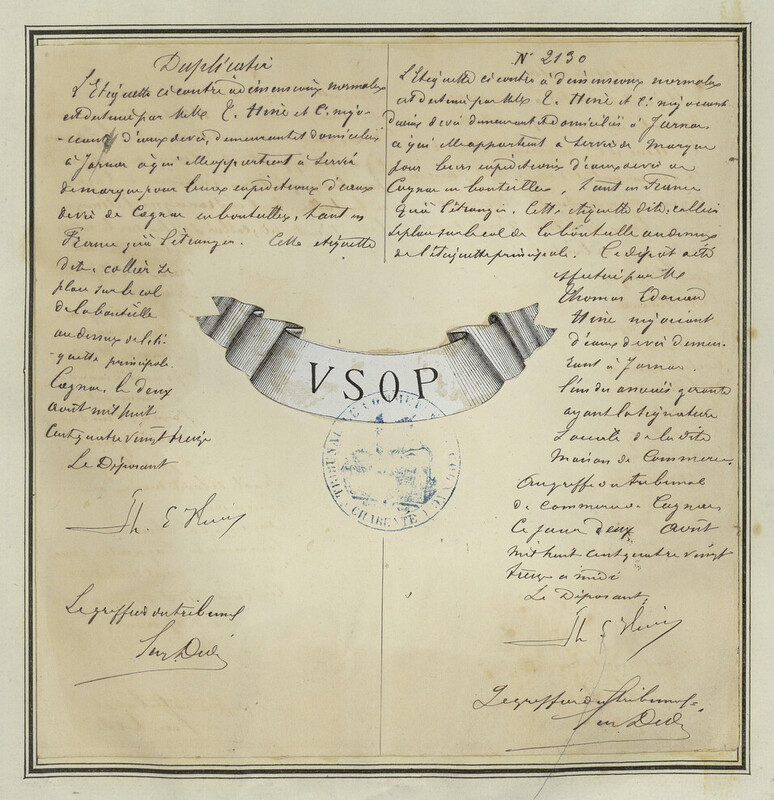 Duplicata
L'Etiquette ci contre à dimensions normales
est destinée par MMrs T. Hine et Cie négo-
-ciants d'eaux de vie, demeurant et domiciliés
à Jarnac à qui elle appartient à servir
de marque pour leurs expéditions d'eaux
de vie de Cognac en bouteilles, tant en
France qu'à l'étranger. Cette étiquette
dite, collier se
place sur le col
de la bouteille
au dessus de l'éti-
quette principale.
Cognac, le deux
août mil huit
cent quatre vingt treize
Le Déposant
Th. E Hine
Le greffier du tribunal
N° 2130
L'Etiquette ci contre à dimensions normales
est destinée par MMrs T. Hine et Cie négociants
d'eaux de vie demeurant et domiciliés à Jarnac
à qui elle appartient à servir de marque
pour leurs expéditions d'eaux de vie de
Cognac en bouteilles, tant en France
qu'à l'étranger. Cette étiquette dite, collier
se place sur le col de la bouteille au dessus
de l'étiquette principale. Ce dépôt a été
effectué par Mr
Thomas Edouard
Hine négociant
d'eaux de vie demeu-
rant à Jarnac.
l'un des associés gérants
ayant la signature
sociale de la dite
Maison de Commerce.
Au greffe du tribunal
de commerce de Cognac
Ce jour deux août
mil huit cent quatre vingt
treize à midi
Le Déposant,
Th E Hine
Le greffier du tribunal.
VSOP
TRIBUNAL DE COMMERCE COGNAC
CHARENTE